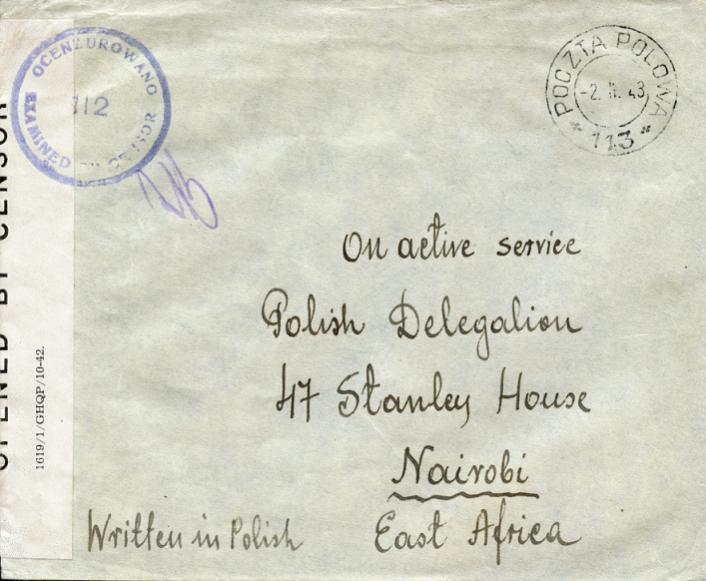 OCENZUROWANO
112
EXAMINED BY CENSOR
POCZTA POLOWA
-2. II. 43
* 113 *
On active service
Polish Delegation
47 Stanley House
Nairobi
East Africa
Written in Polish
OPENED BY CENSOR
1619/1/GHQP/10-42.